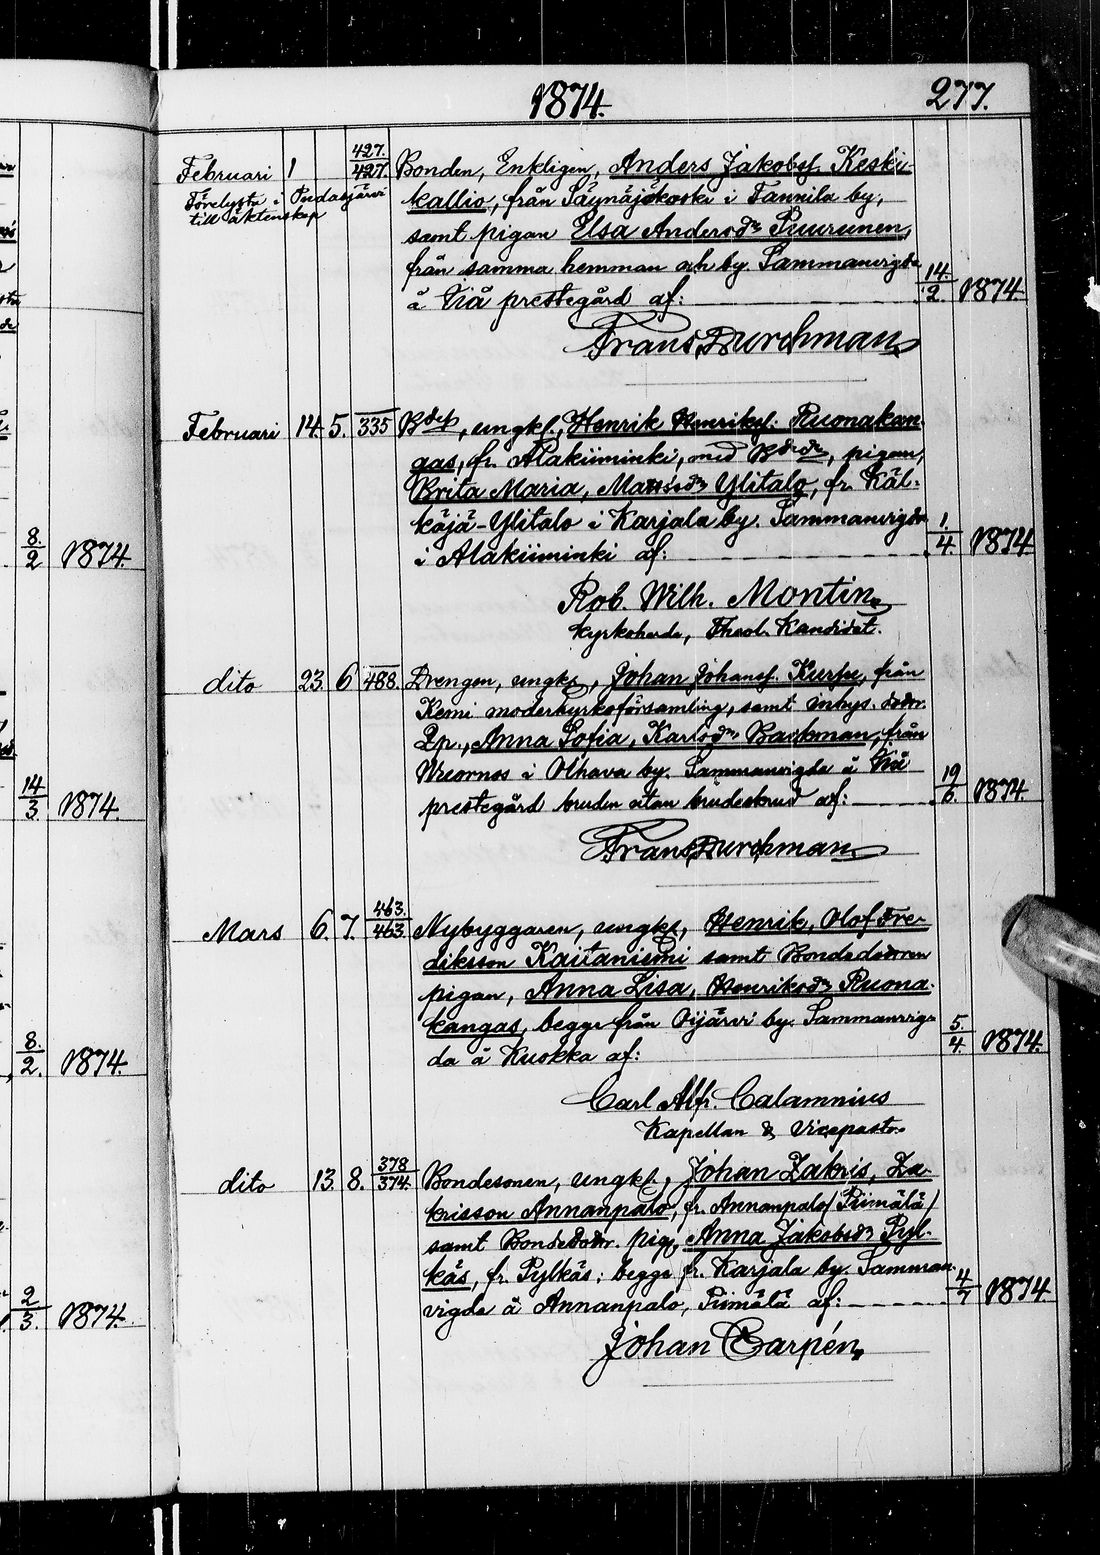 1874.
277.
Februari 1 427. 427. Bonden, Enklingen, Anders Jakobsf. Keski-
Förelysta i Pudasjärvi
till äktenskap
kallio, från Säynäjäkoski i Tannila by,
samt pigan Elsa Andersdr Puurunen,
från samma hemman och by. Sammanvigda
å Iiå prestegård af: 14. 2. 1874.
Frans Durchman
Februari 14. 5. 335 Bdes, ungk., Henrik Henriksf. Ruonakan-
gas, fr. Alakiiminki, med Bdedr, pigan,
Brita Maria, Mattsdr Ylitalo, fr. Käl-
käjä-Ylitalo i Karjala by. Sammanvigda
i Alakiiminki af: 1. 4. 1874
Rob. Wilh. Montin
Kyrkoherde, Theol. Kandidat.
dito 23. 6 488. Drengen, ungk., Johan Johansf. Kurpe, från
Kemi moderkyrkoförsamling, samt inhys. dotr.
Qp., Anna Sofia, Karlsdr Backman, från
Wuornos i Olhava by. Sammanvigda å Iiå
prestegård bruden utan brudeskrud af: 19 6. 1874.
Frans Durchman
Mars 6. 7. 463. 463. Nybyggaren, ungk., Henrik, Olof Fre-
driksson Kaitaniemi samt Bondedottren
pigan, Anna Lisa, Henriksdr Ruona-
kangas, begge från Oijärvi by. Sammanvig-
da å Kuokka af: 5. 4. 1874.
Carl Alfr. Calamnius
Kapellan & Vicepastor
dito 13. 8. 378 374. Bondesonen, ungk., Johan Zakris, Za-
krisson Annanpalo, fr. Annanpalo/Piimälä/
samt Bondedotr. pig., Anna Jakobsdr Pyl-
käs, fr. Pylkäs; begge fr. Karjala by. Samman-
vigda å Annanpalo, Piimälä af: 4 7 1874
Johan Carpén
8. 2 1874.
14 3. 1874.
8. 2. 1874.
2 3. 1874.